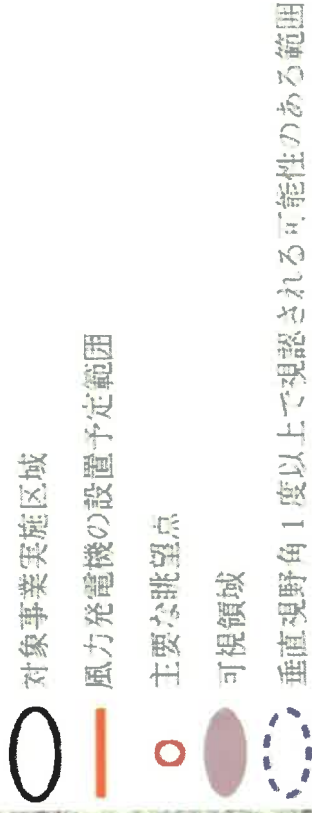 対象事業実施区域
風力発電機の設置予定範囲
主要な眺望点
可視領域
垂直視野角1度以上で視認される可能性のある範囲